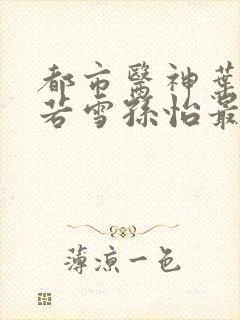 都市醫神葉
若雪孫怡最
薄涼一色